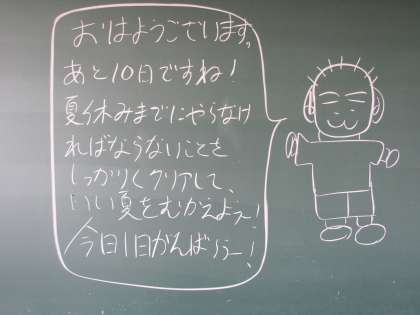 おはようございます。
あと10日ですね!
夏休みまでにやらなけ
ればならないことを
しっかりとクリアして、
いい夏をむかえよう!
今日1日がんばろう!